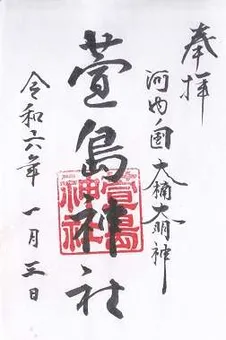 奉拝
河内国 大楠大明神
萱島神社
萱島神社
令和六年 一月三日